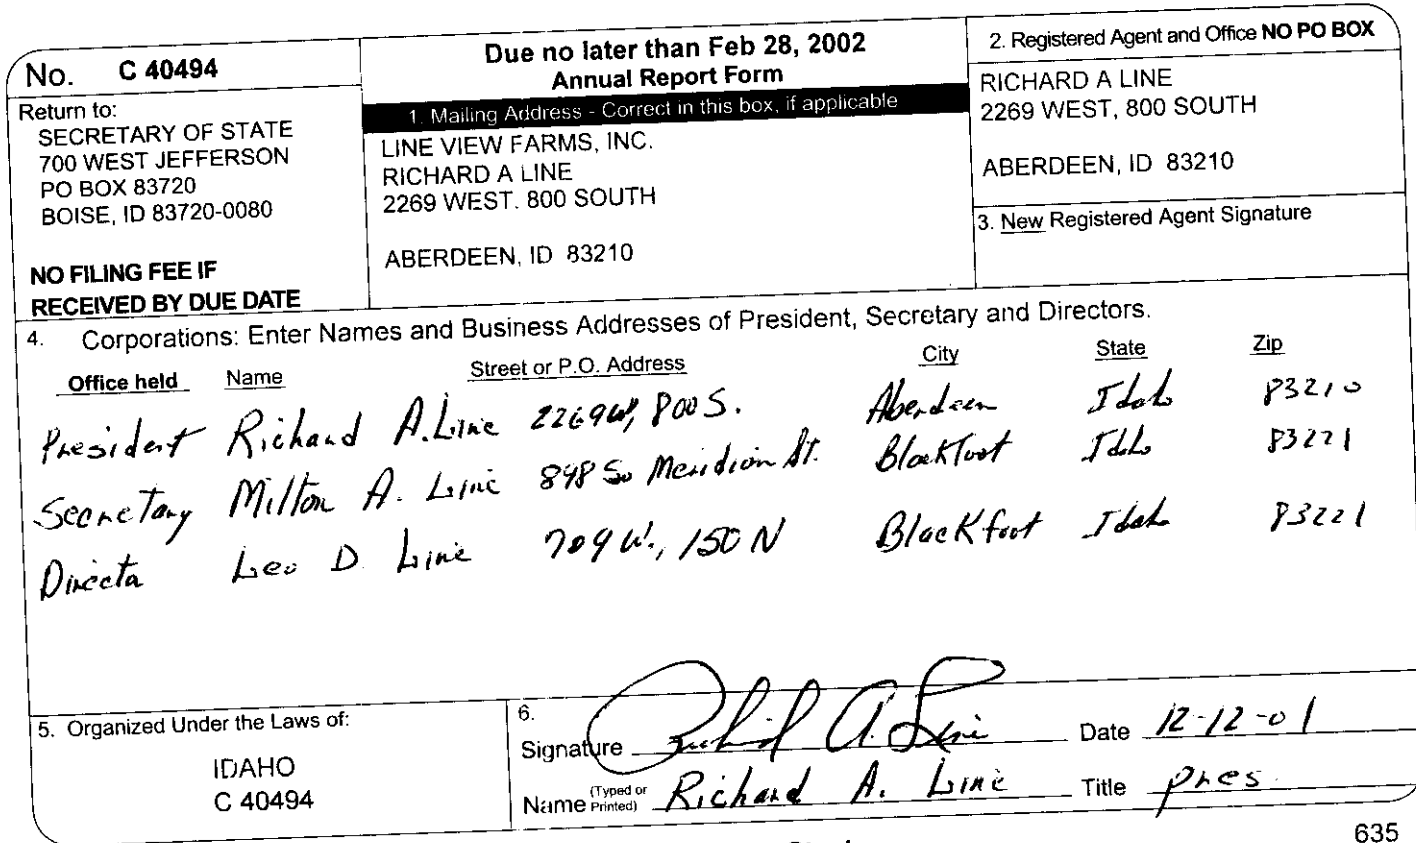 No. C 40494
Return to:
SECRETARY OF STATE
700 WEST JEFFERSON
PO BOX 83720
BOISE, ID 83720-0080
NO FILING FEE IF
RECEIVED BY DUE DATE
Due no later than Feb 28, 2002
Annual Report Form
1. Mailing Address - Correct in this box, if applicable
LINE VIEW FARMS, INC.
RICHARD A LINE
2269 WEST. 800 SOUTH
ABERDEEN, ID 83210
2. Registered Agent and Office NO PO BOX
RICHARD A LINE
2269 WEST, 800 SOUTH
ABERDEEN, ID 83210
3. New Registered Agent Signature
4. Corporations: Enter Names and Business Addresses of President, Secretary and Directors.
Office held Name Street or P.O. Address City State Zip
President Richard A. Line 2269 W, 800 S. Aberdeen Idaho 83210
Secretary Milton A. Line 898 So Meridian St. Blackfoot Idaho 83221
Director Leo D. Line 709 W., 150 N Blackfoot Idaho 83221
5. Organized Under the Laws of:
IDAHO
C 40494
6.
Signature Richard A. Line Date 12-12-01
Name (Typed or Printed) Richard A. Line Title Pres.
635